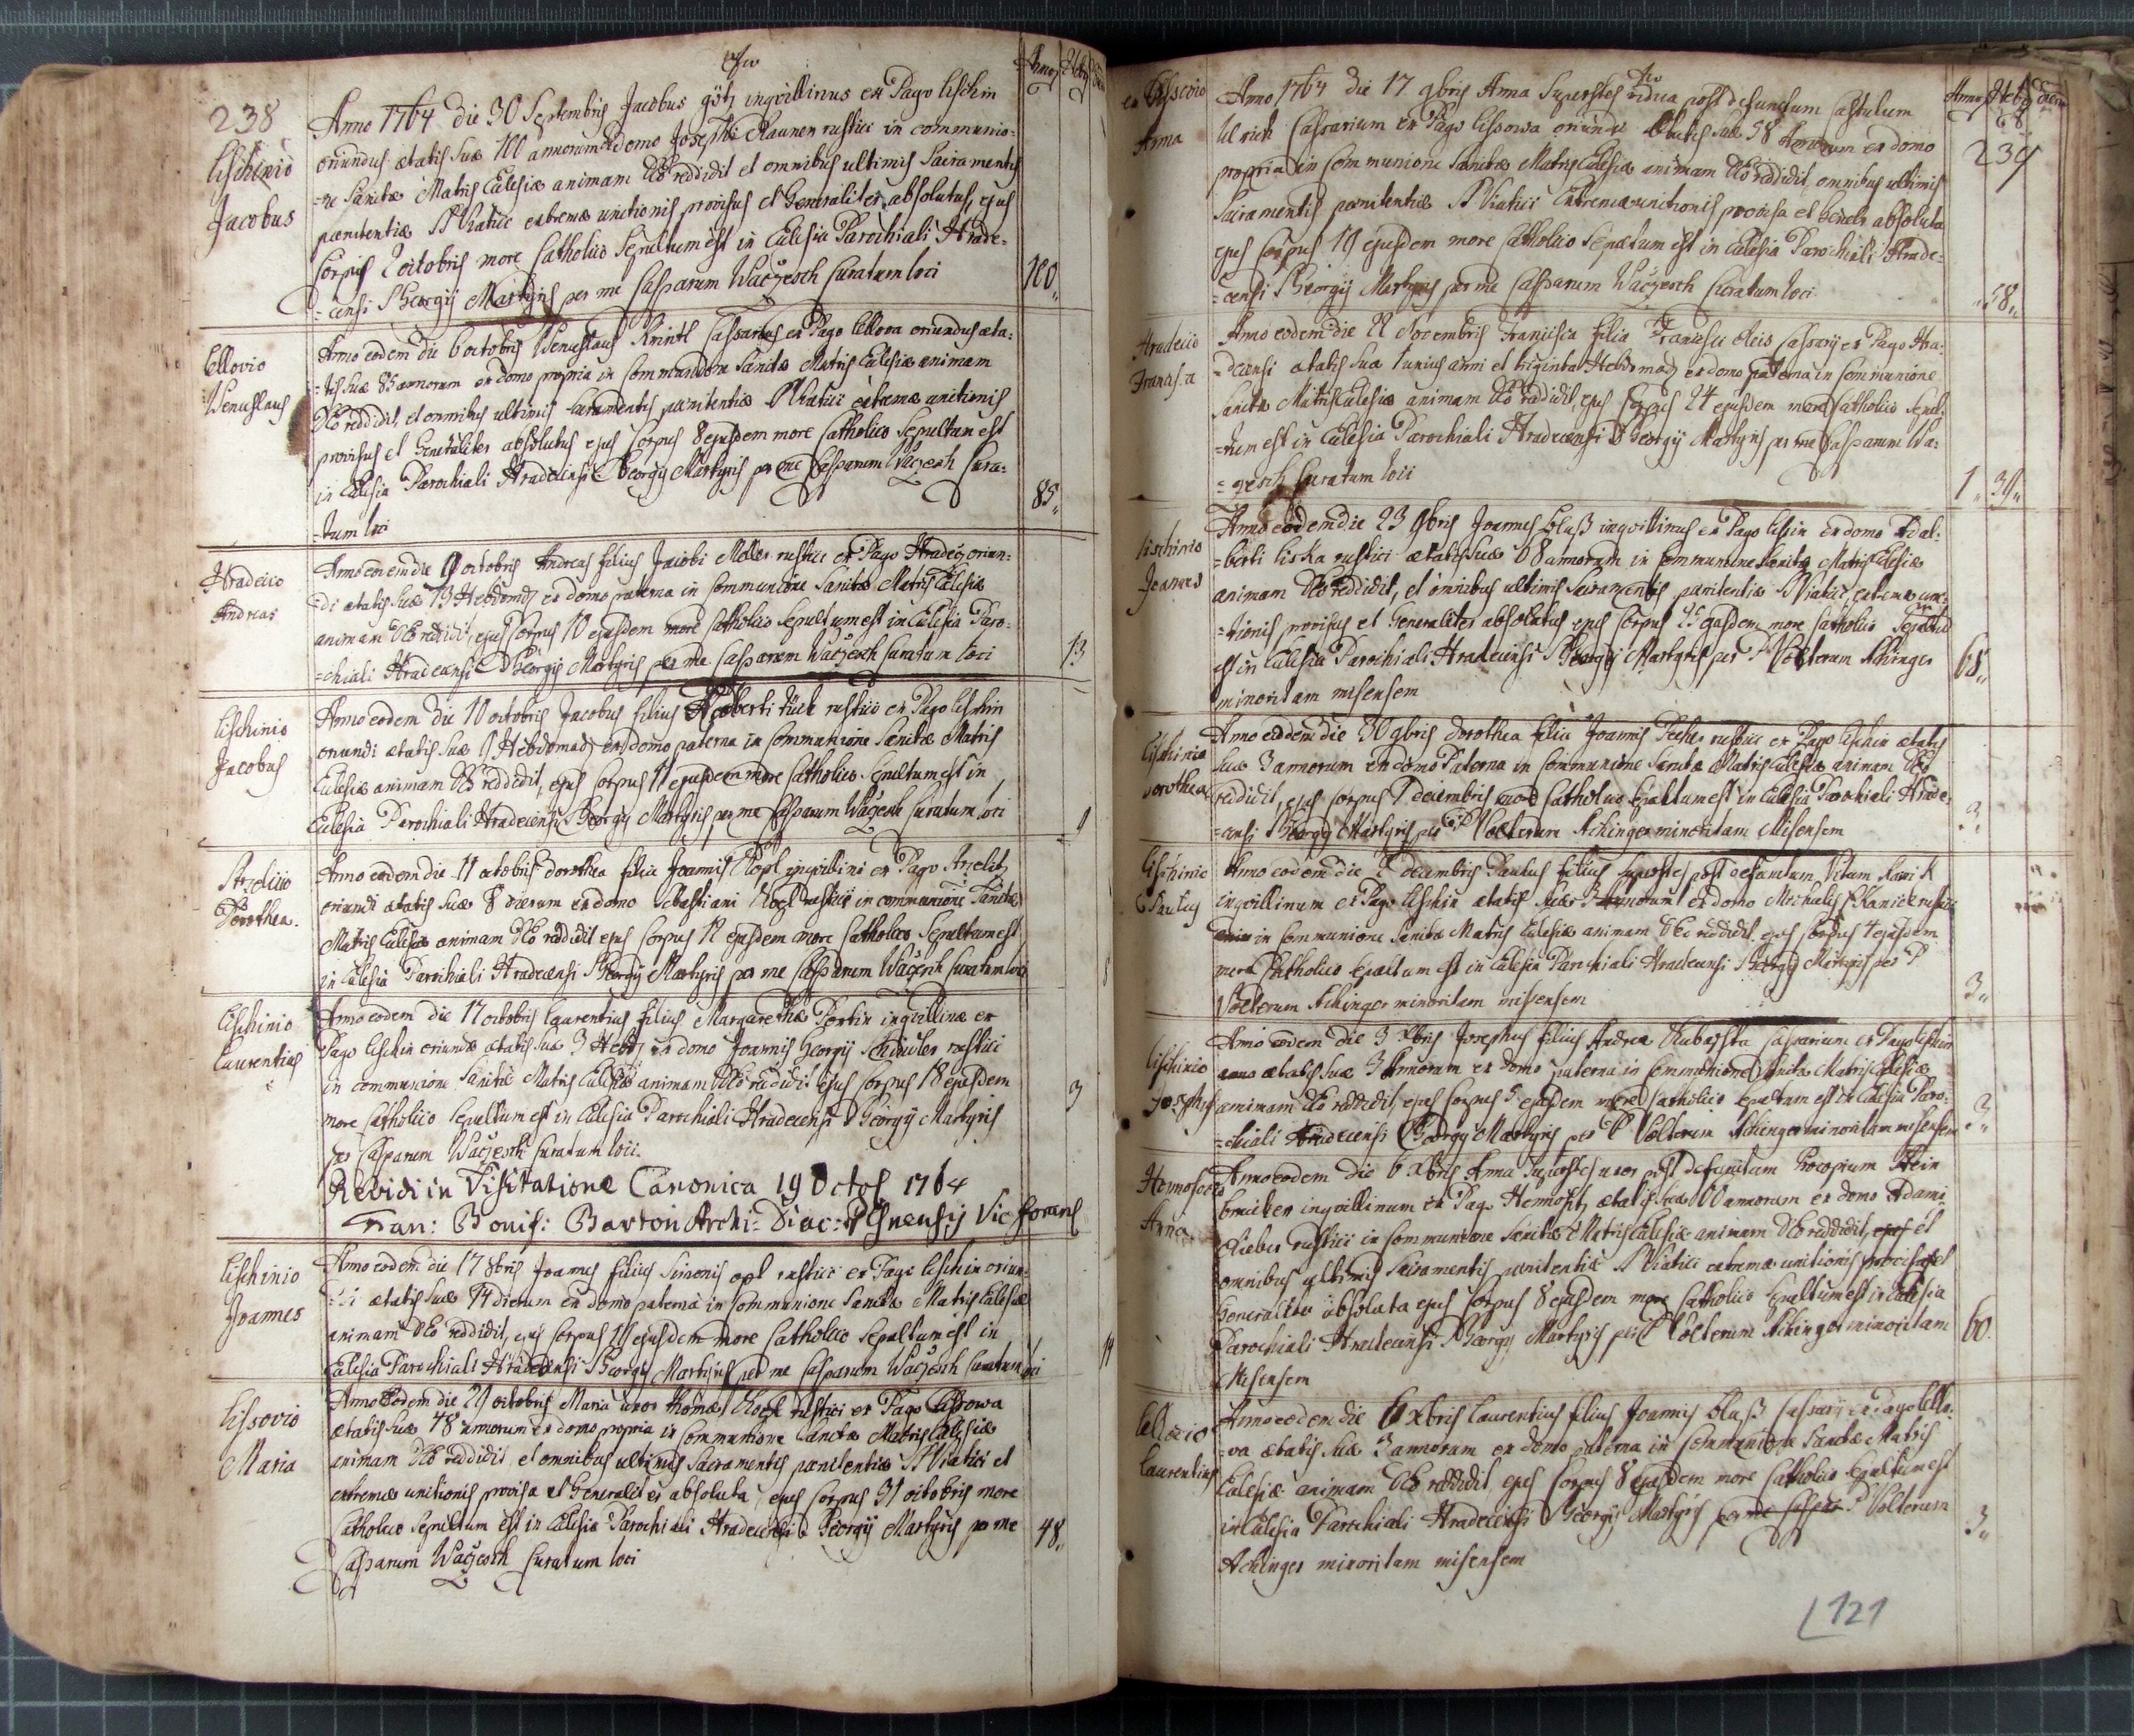 238
Anno Hebd dieru
Lischinio
Jacobus
Anno 1764 die 30 Septembris Jacobus götz inqvillinus ex Pago Lischin
oriundus ætatis suæ 100 annorum ex domo Josephi Braunen rustici in communio-
=ne Sanctæ Matris Eclesiæ animam DEo reddidit et omnibus ultimis Sacramentis
pænitentiæ SS Viatici extremæ unctionis provisus et Generaliter absolutus, ejus
Corpus 2 octobris more Catholico Sepultum est in Eclesia Parochiali Hrade-
=censi S Georgij Martyris per me Casparum Waczesch Curatum loci
100,,
Lellovio
Wenceslaus
Anno eodem die 6 octobris Wenceslaus Krintl Cassarius ex Pago Lellova oriundus æta-
=tis suæ 85 annorum ex domo propria in Communione Sanctæ Matris Eclesiæ animam
DEo reddidit, et omnibus ultimis Sacramentis pænitentiæ SS Viatici extremæ unctionis
provisus et Generaliter absolutus ejus Corpus 8 ejusdem more Catholico Sepultum est
in Eclesia Parochiali Hradecensi S Georgij Martyris per me Casparum Waczesch Cura-
-tum loci
85,,
Hradecio
Andreas
Anno eodem die 9 octobris Andreas filius Jacobi Meller rustici ex Pago Hradecz oriun-
-di ætatis suæ 13 Hebdomad ex domo paterna in Communione Sanctæ Matris Eclesiæ
animam DEo reddidit, ejus Corpus 10 ejusdem more Catholico Sepultum est in Eclesia Paro-
=chiali Hradecensi S Georgij Martyris per me Casparum Waczesch Curatum loci
13
Lischinio
Jacobus
Anno eodem die 10 octobris Jacobus filius Adalberti tück rustici ex Pago Lischin
oriundi ætatis suæ 9 Hebdomad ex domo paterna in Communione Sanctæ Matris
Eclesiæ animam DEo reddidit, ejus Corpus 11 ejusdem more Catholico Sepultum est in
Eclesia Parochiali Hradecensi S Georgij Martyris per me Casparum Waczesch Curatum loci
9
Strzelicio
Dorothea.
Anno eodem die 11 octobris Dorothea filia Joannis Kopl inqvillini ex Pago Strzelitz
oriundi ætatis suæ 8 dierum ex domo Sebastiani Kopl rustici in communione Sanctæ
Matris Eclesiæ animam DEo reddidit ejus Corpus 12 ejusdem more Catholico Sepultum est
in Eclesia Parochiali Hradecensi S Georgij Martyris per me Casparum Waczesch Curatum loci
8
Lischinio
Laurentius
Anno eodem die 17 octobris Laurentius filius Margarethæ Pertin inqvillinæ ex
Pago Lischin oriundæ ætatis suæ 3 Hebd ex domo Joannis Georgij Schindler rustici
in communione Sanctæ Matris Eclesiæ animam DEo reddidit ejus Corpus 18 ejusdem
more Catholico Sepultum est in Eclesia Parochiali Hradecensi S Georgij Martyris
per Casparum Waczesch Curatum loci.
3
Revidi in Visitatione Canonica 19 Octob 1764
Fran: Bonif: Barton Archi-Diac: Plsnensis Vic forans
Lischinio
Joannes
Anno eodem die 17 8bris Joannes filius Simonis opl rustici ex Pago Lischin oriun-
-di ætatis suæ 14 dierum ex domo paterna in Communione Sanctæ Matris Eclesiæ
animam DEo reddidit, ejus Corpus 19 ejusdem more Catholico Sepultum est in
Eclesia Parochiali Hradecensi S Georgij Martyris per me Casparum Waczesch Curatum loci
14
Lissovio
Maria
Anno Eodem die 29 octobris Maria uxor thomæ Kopl rustici ex Pago Lissowa
ætatis suæ 48 annorum ex domo propria in Communione Sanctæ Matris Eclesiæ
animam DEo reddidit, et omnibus ultimis Sacramentis pænitentiæ SS Viatici et
extremæ unctionis provisa et Generaliter absoluta ejus Corpus 31 octobris more
Catholico Sepultum est in Eclesia Parochiali Hradecensi S Georgij Martyris per me
Casparum Waczesch Curatum loci
48,,
239
Anno Hebd dieru
ex Lissovio
Anna
Anno 1764 die 17 9bris Anna Superstes vidua post defunctum Castulum
Ulrich Cassarium ex Pago Lissowa oriundi ætatis suæ 58 Annorum ex domo
propria in Communione Sanctæ Matris Eclesiæ animam DEo reddidit, omnibus ultimis
Sacramentis pænitentiæ SS Viatici Extremæ unctionis provisa et Generaliter absoluta
ejus Corpus 19 ejusdem more Catholico Sepultum est in Eclesia Parochiali Hrade-
=censi S Georgij Martyris per me Casparum Waczesch Curatum loci
58,,
Hradecio
Francisca
Anno eodem die 22 Novembris Francisca filia Francisci Reis Cassarij ex Pago Hra-
-decensi ætatis sua 1 unius anni et triginta Hebdomad ex domo paterna in Communione
Sanctæ Matris Eclesiæ animam DEo reddidit, ejus Corpus 24 ejusdem more Catholico Sepul-
-tum est in Eclesia Parochiali Hradecensi S Georgij Martyris per me Casparum Wa-
=czesch Curatum loci
1,, 30,,
Lischinio
Joannes
Anno eodem die 23 9bris Joannes blass inqvillinus ex Pago Lischin ex domo Adal-
-berti Liska rustici ætatis suæ 68 annorum in Communione Sanctæ Matris Eclesiæ
animam DEo reddidit, et omnibus ultimis Sacramentis pænitentiæ SS Viatici extremæ unc-
-tionis provisus et Generaliter absolutus ejus Corpus 25 ejusdem more Catholico Sepultum
est in Eclesia Parochiali Hradecensi S Georgij Martyris per P Volterum Achinger
minoritam misensem
68,,
Lischinio
Dorothea
Anno eodem die 30 9bris Dorothea filia Joannis Pecher rustici ex Pago Lischin ætatis
suæ 3 annorum ex domo Paterna in Communione Sanctæ Matris Eclesiæ animam DEo
reddidit, ejus Corpus 1 decembris more Catholico Sepultum est in Eclesia Parochiali Hrade-
-censi S Georgij Martyris per P Volterum Achinger minoritam Misensem
3,
Lischinio
Paulus
Anno eodem die 2 decembris Paulus filius Superstes post defunctum Vitum Kanik
inqvillinum ex Pago Lischin ætatis suæ 3 Annorum ex domo Michalis Kanick rustici
in Communione Sanctæ Matris Eclesiæ animam DEo reddidit ejus Corpus 4 ejusdem
more Catholico Sepultum est in Eclesia Parochiali Hradecensi S Georgij Martyris per P
Volterum Achinger minoritam misensem
3,,
Lischinio
Josephus
Anno eodem die 3 Xbris Josephus filius Andreæ Kubaschta Cassarium ex Pago Lischin
ætatis suæ 3 Annorum ex domo paterna in Communione Sanctæ Matris Eclesiæ
animam DEo reddidit, ejus Corpus 5 ejusdem more Catholico Sepultum est in Eclesia Paro-
-chiali Hradecensi S Georgij Martyris per P Volterum Achinger minoritam misensem
3,,
Anna
Anno eodem die 6 Xbris Anna Superstes uxor post defunctum Procopium Stein
brucker inqvillinum ex Pago ætatis suæ 60 annorum ex domo Adami
Lieber rustici in Communione Sanctæ Matris Eclesiæ animam DEo reddidit, ejus et
omnibus ultimis Sacramentis pænitentiæ SS Viatici extremæ unctionis provisa et
Generaliter absoluta ejus Corpus 8 ejusdem more Catholico Sepultum est in Eclesia
Parochiali Hradecensi S Georgij Martyris per P Volterum Achinger minoritam
Misensem
60.
Lellovio
Laurentius
Anno eodem die 6 Xbris Laurentius filius Joannis blass Cassarij ex Pago Lello-
-va ætatis suæ 3 annorum ex domo paterna in Communione Sanctæ Matris
Eclesiæ animam DEo reddidit ejus Corpus 8 ejusdem more Catholico Sepultum est
in Eclesia Parochiali Hradecensi S Georgij Martyris per me P Volterum
Achinger minoritam misensem
3,,
121